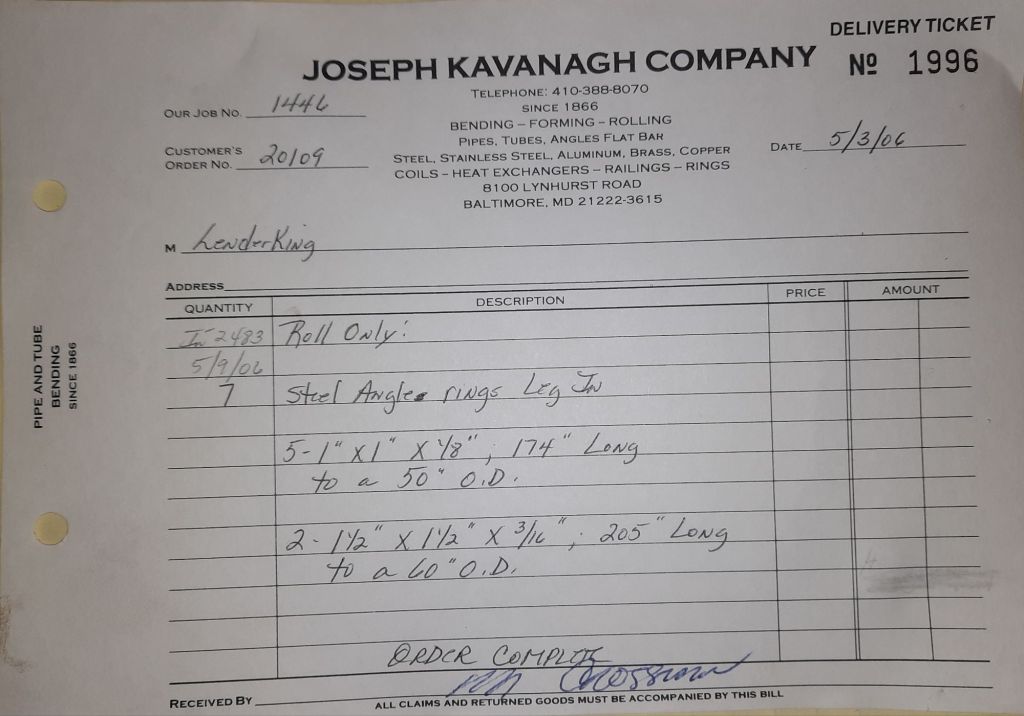 DELIVERY TICKET
JOSEPH KAVANAGH COMPANY
Nº 1996
TELEPHONE: 410-388-8070
SINCE 1866
BENDING – FORMING – ROLLING
PIPES, TUBES, ANGLES FLAT BAR
STEEL, STAINLESS STEEL, ALUMINUM, BRASS, COPPER
COILS – HEAT EXCHANGERS – RAILINGS – RINGS
8100 LYNHURST ROAD
BALTIMORE, MD 21222-3615
OUR JOB NO. 1446
CUSTOMER'S
ORDER NO. 20109
DATE 5/3/06
M LenderKing
ADDRESS
QUANTITY DESCRIPTION PRICE AMOUNT
In 2483 Roll Only:
5/9/06
7 Steel Angle rings Leg In
5-1" X 1" X 1/8", 174" Long
to a 50" O.D.
2- 1 1/2" X 1 1/2" X 3/16", 205" Long
to a 60" O.D.
ORDER COMPLETE
RECEIVED BY
ALL CLAIMS AND RETURNED GOODS MUST BE ACCOMPANIED BY THIS BILL
PIPE AND TUBE
BENDING
SINCE 1866